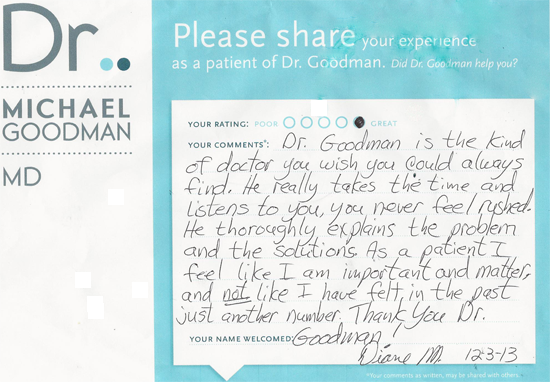 Dr..
MICHAEL
GOODMAN
MD
Please share your experience
as a patient of Dr. Goodman. Did Dr. Goodman help you?
YOUR RATING: POOR GREAT
YOUR COMMENTS*: Dr. Goodman is the kind
of doctor you wish you could always
find. He really takes the time and
listens to you, you never feel rushed.
He thoroughly explains the problem
and the solutions. As a patient I
feel like I am important and matter,
and not like I have felt, in the past
just another number. Thank You Dr.
YOUR NAME WELCOMED: Goodman!
Diane M. 12-3-13
*Your comments as written, may be shared with others.